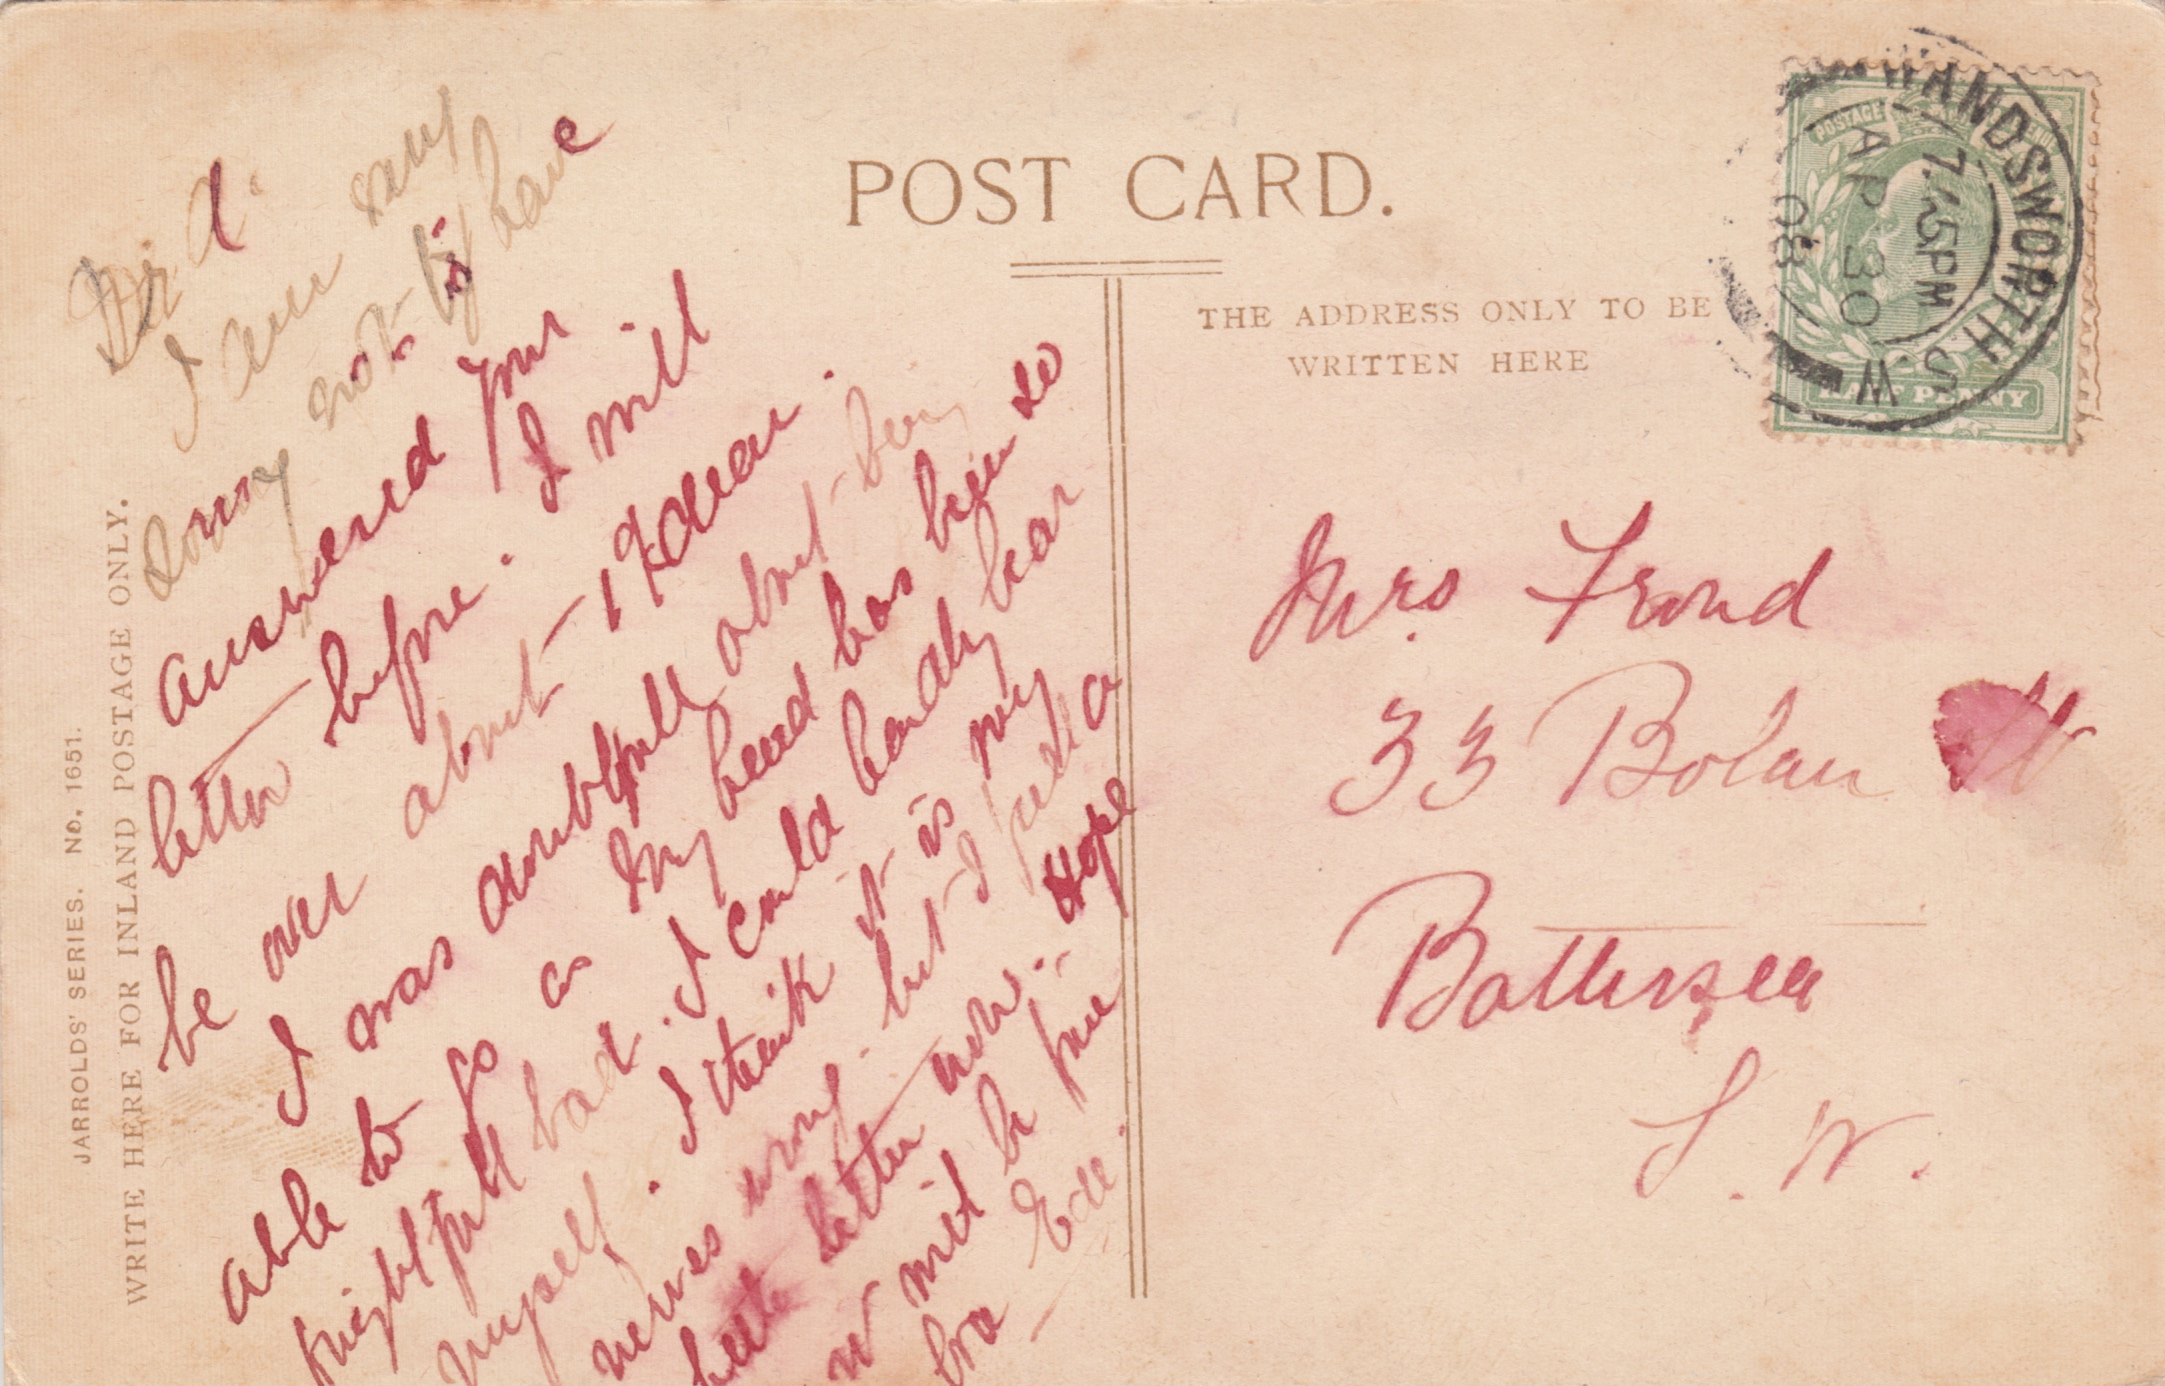 POST CARD.
THE ADDRESS ONLY TO BE
WRITTEN HERE
WRITE HERE FOR INLAND POSTAGE ONLY.
JARROLDS' SERIES. No. 1651.
WANDSWORTH S.W
7.45PM
AP 30
08
POSTAGE
HALF PENNY
Dr A.
I am very
sorry not to have
answered your
letter before. I will
be over about 1
I was doubtfull about being
able to go as my head has been so
frightfull bad. I could hardly bear
myself. I think it is my
nerves wrong but I feel a
better now. Hope
it will be fine
Mrs Frond
33 Bolan St
Battersea
S.W.